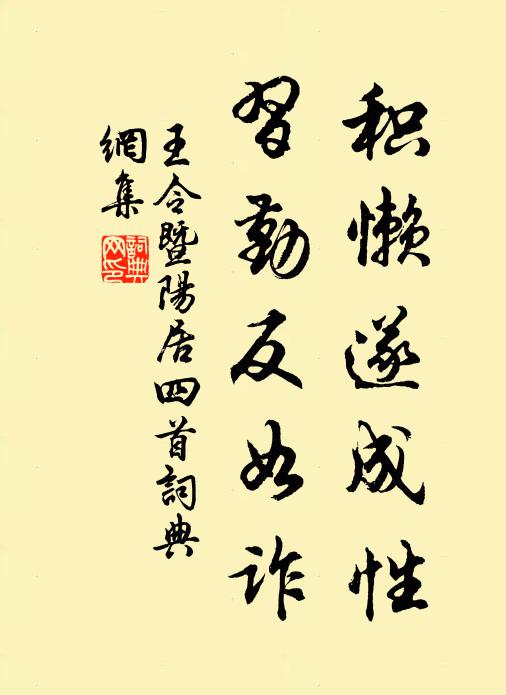 积懒遂成性
习勤反如诈
王令暨陽居四首詞典
網集
詞典網印